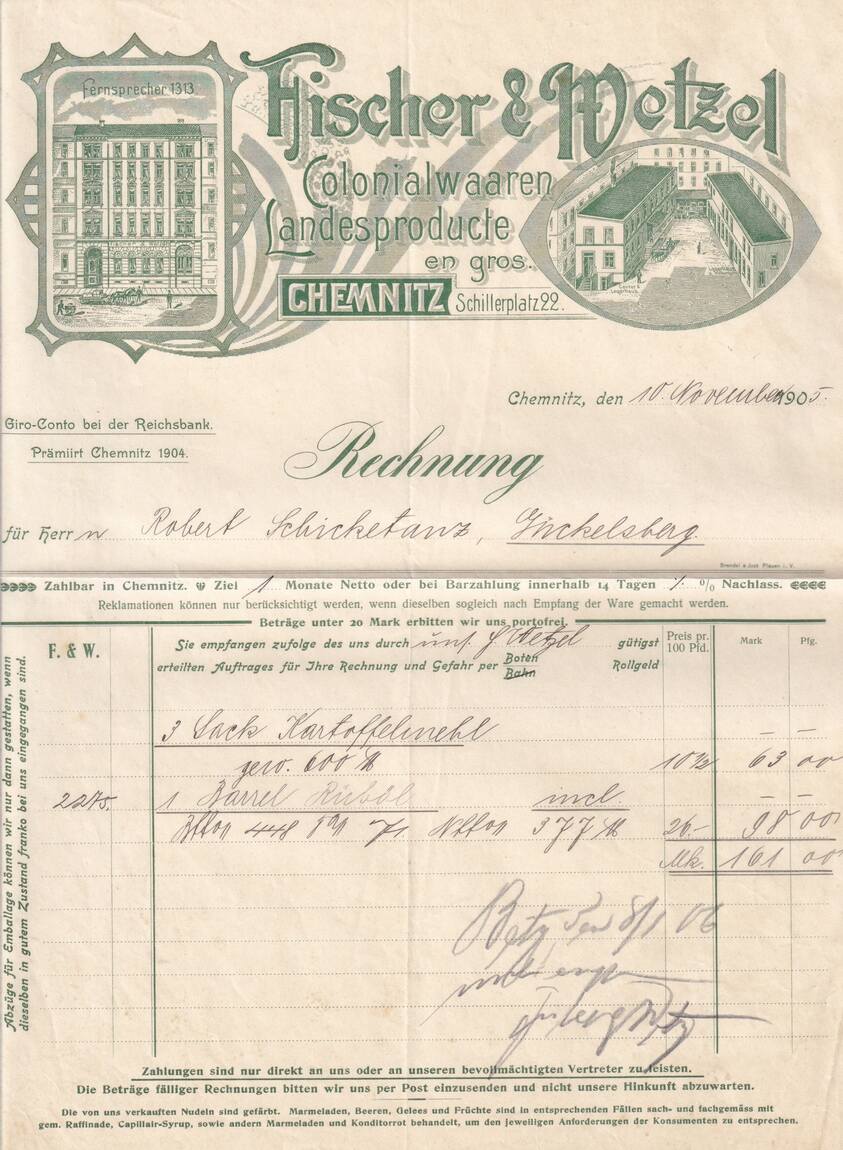 Fernsprecher 1313.
Fischer & Wetzel
Colonialwaaren
Landesproducte
en gros.
CHEMNITZ Schillerplatz 22.
Chemnitz, den 10. November 1905.
Giro-Conto bei der Reichsbank.
Prämiirt Chemnitz 1904.
Rechnung
für Herrn Robert Schicketanz, Gückelsberg.
Brendel & Jost Plauen i. V.
Zahlbar in Chemnitz. Ziel 1 Monate Netto oder bei Barzahlung innerhalb 14 Tagen % Nachlass.
Reklamationen können nur berücksichtigt werden, wenn dieselben sogleich nach Empfang der Ware gemacht werden.
Beträge unter 20 Mark erbitten wir uns portofrei.
F. & W.
Sie empfangen zufolge des uns durch uns. H. Wetzel gütigst
erteilten Auftrages für Ihre Rechnung und Gefahr per Boten Bahn Rollgeld
Preis pr. 100 Pfd. Mark Pfg.
3 Sack Kartoffelmehl — —
gew. 600 ℔ 10½ 63 00
2275. 1 Barrel Rüböl incl. — —
Btton 448 71 Ntton 377 ℔ 26.- 98 00
Mk. 161 00
8/1 06
Abzüge für Emballage können wir nur dann gestatten, wenn
dieselben in gutem Zustand franko bei uns eingegangen sind.
Zahlungen sind nur direkt an uns oder an unseren bevollmächtigten Vertreter zu leisten.
Die Beträge fälliger Rechnungen bitten wir uns per Post einzusenden und nicht unsere Hinkunft abzuwarten.
Die von uns verkauften Nudeln sind gefärbt. Marmeladen, Beeren, Gelees und Früchte sind in entsprechenden Fällen sach- und fachgemäss mit
gem. Raffinade, Capillair-Syrup, sowie andern Marmeladen und Konditorrot behandelt, um den jeweiligen Anforderungen der Konsumenten zu entsprechen.